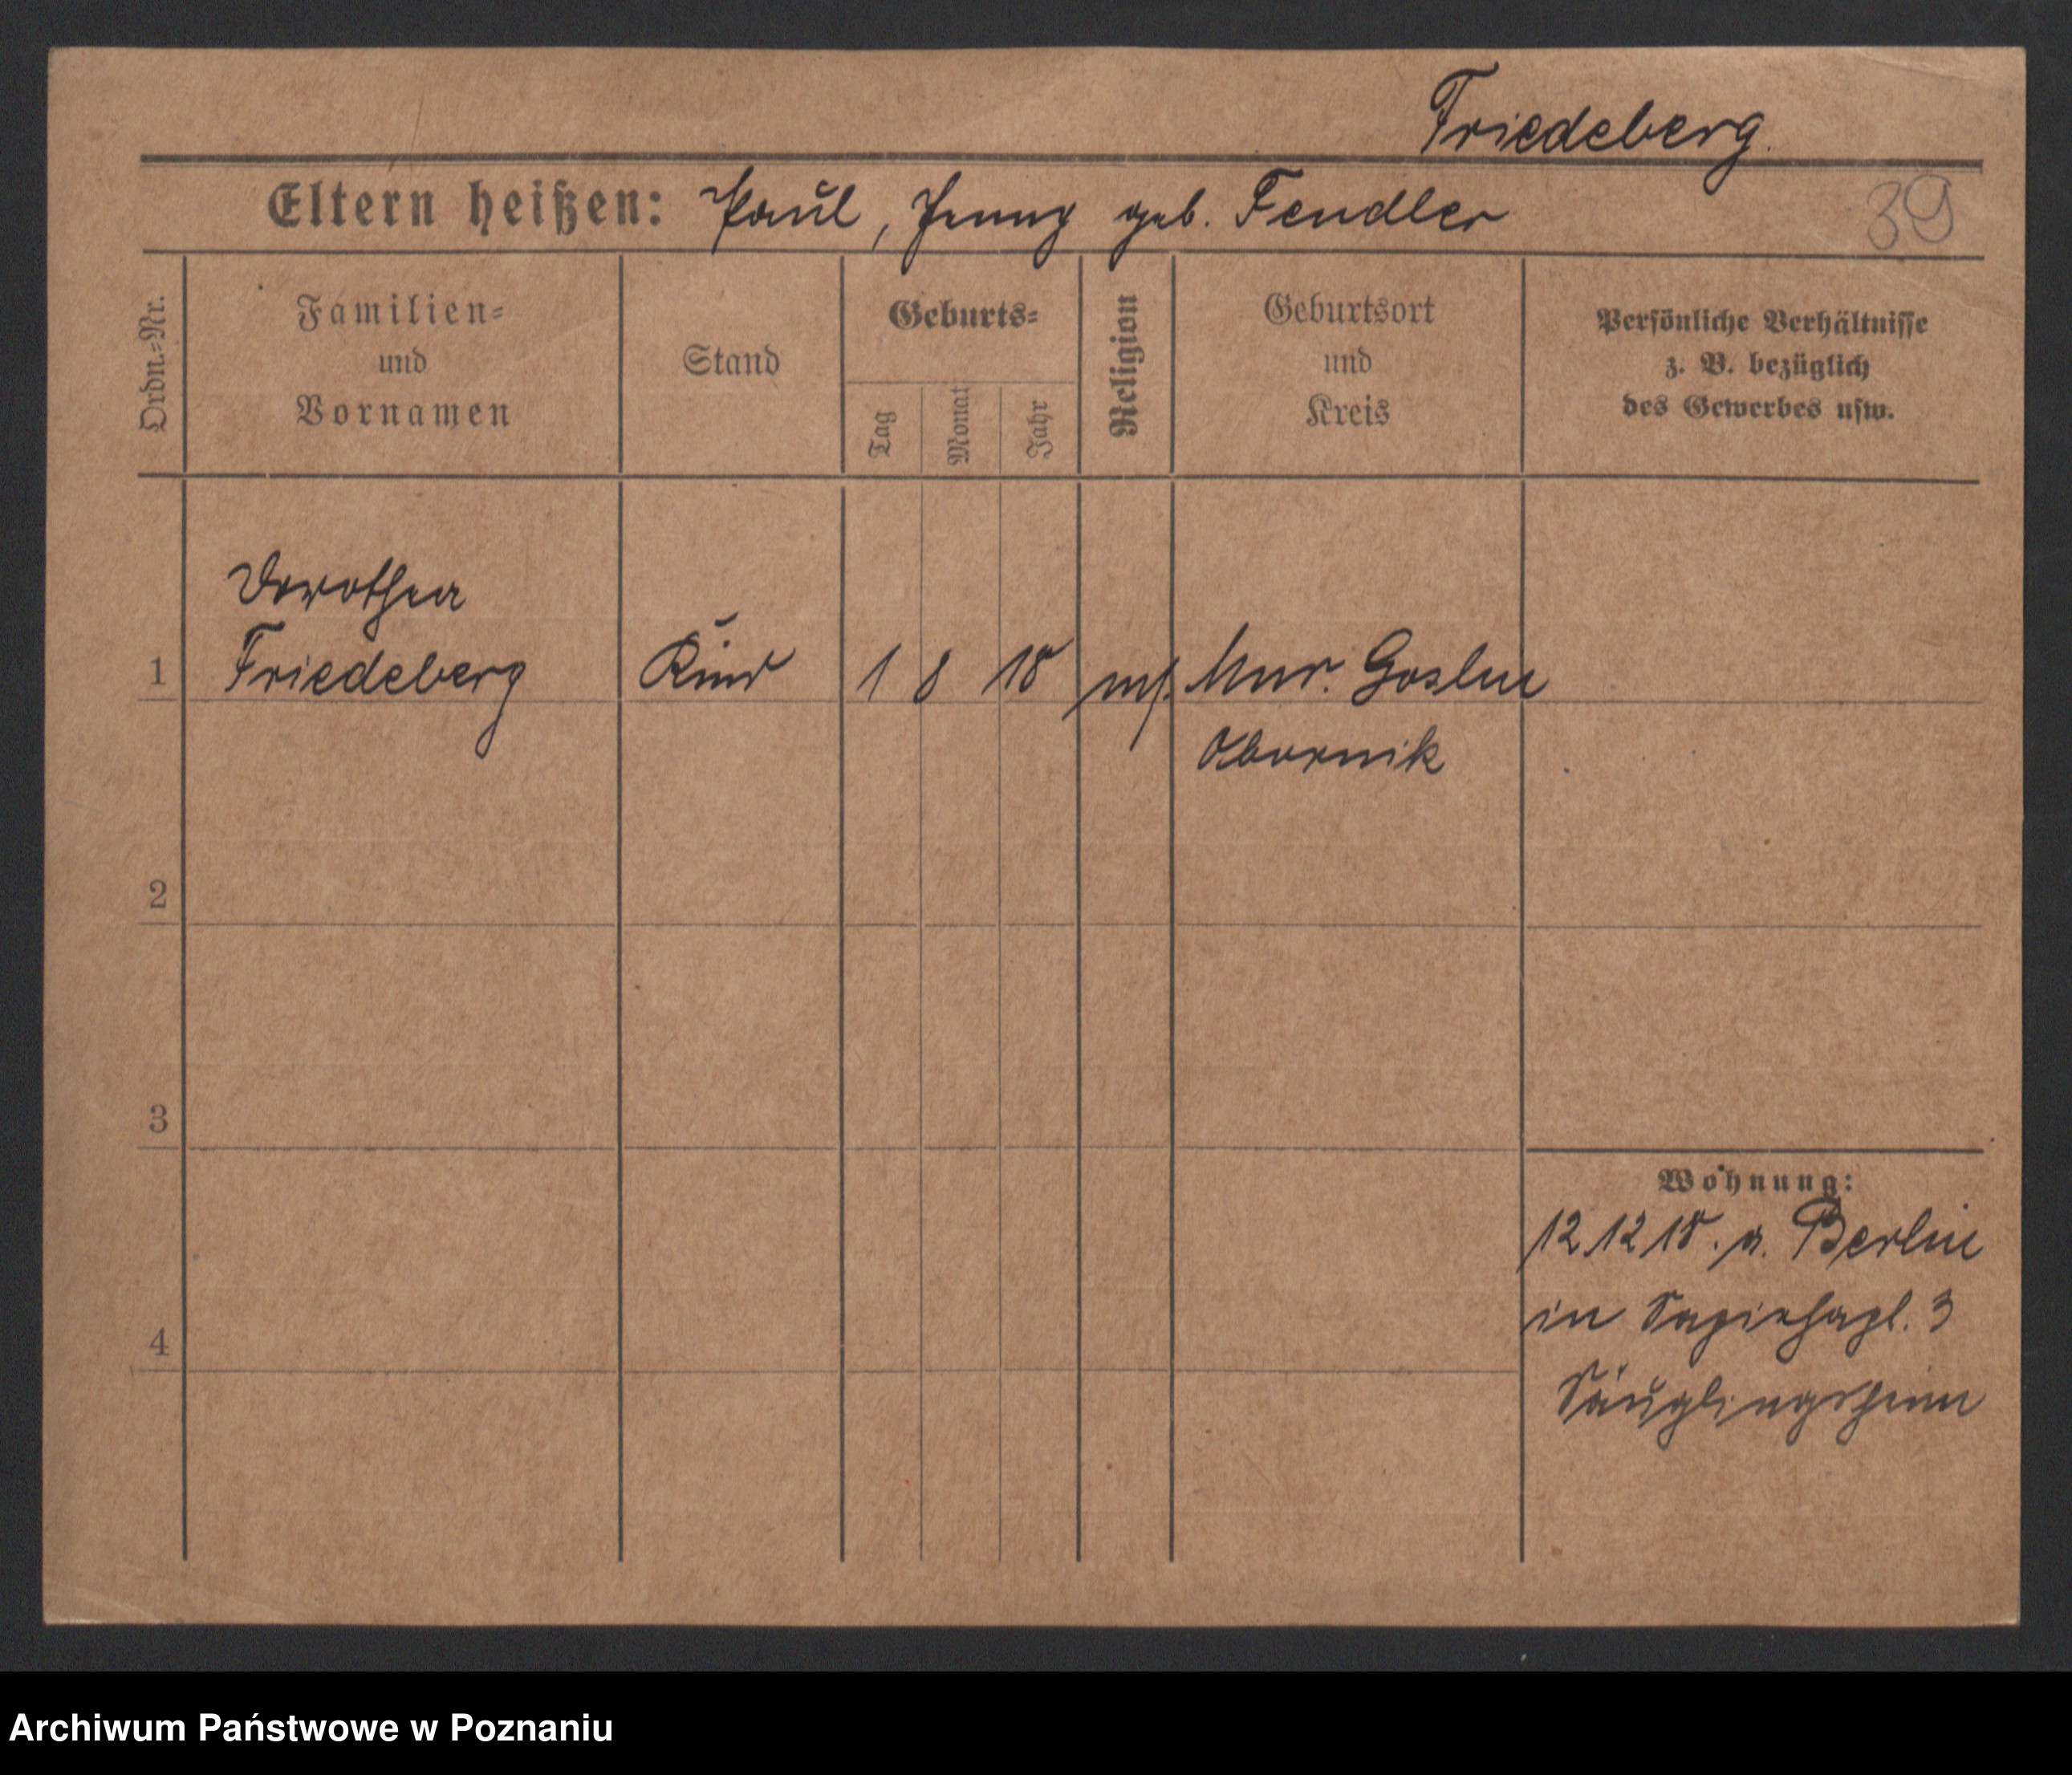 Friedeberg.
Eltern heißen: Paul, Jenny geb. Fendler
39
Ordn.-Nr.
Familien-
und
Vornamen
Stand
Geburts-
Tag
Monat
Jahr
Religion
Geburtsort
und
Kreis
Persönliche Verhältnisse
z. B. bezüglich
des Gewerbes usw.
Dorothea
1 Friedeberg Kind 1 8 18 mos. Mur. Goslin
Obornik
2
3
4
Wohnung:
12 12 18. a. Berlin
in Sapiehapl. 3
Säuglingsheim
Archiwum Państwowe w Poznaniu